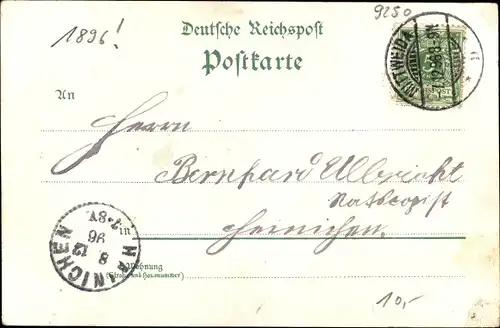 1896!
9250
Deutsche Reichspost
Postkarte
MITTWEIDA
7.12.96.8-9N.
An
Herrn
Bernhard Ulbricht
Ratskopist
Hainichen.
in
HAINICHEN
8
12
96
7-8V.
Wohnung
(Straße und Hausnummer)
10,-